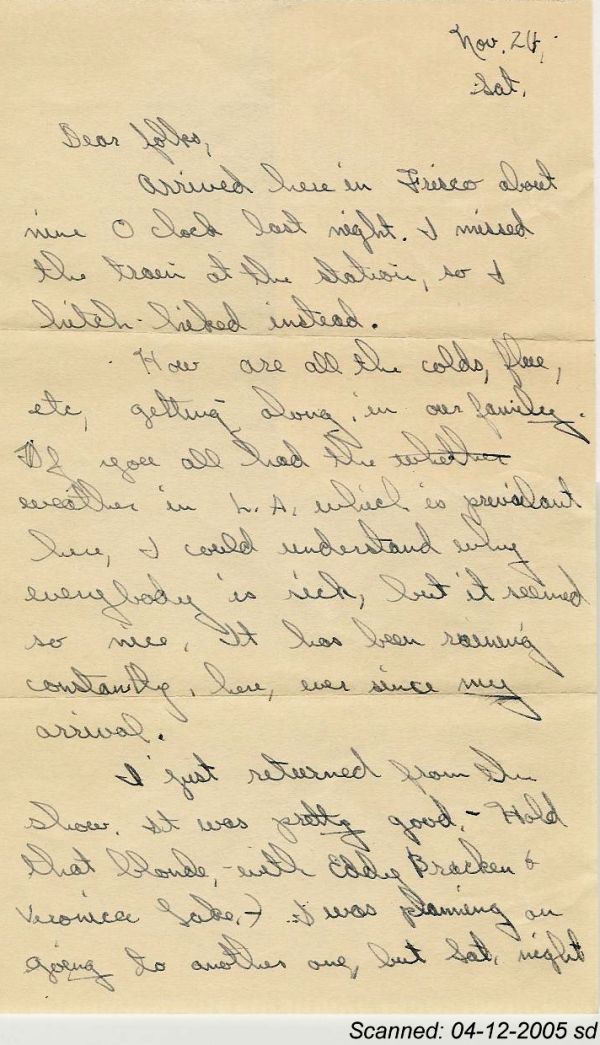 Nov. 24,
Sat.
Dear folks,
Arrived here in Frisco about
nine O clock last night. I missed
the train at the station, so I
hitch-hiked instead.
How are all the colds, flue,
etc, getting along, in our family.
If you all had the whether
weather in L.A. which is prevalant
here, I could understand why
everybody is sick, but it seemed
so nice. It has been raining
constantly, here, ever since my
arrival.
I just returned from the
show. It was pretty good, - Hold
that blonde, - with Eddy Bracken &
Veronica Lake, - I was planning on
going to another one, but Sat. night
Scanned: 04-12-2005 sd